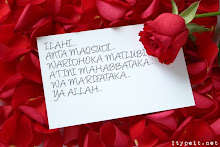 ILAHI..
ANTA MAQSUDI..
WARIDHOKA MATLUBI..
A'TINI MAHABBATAKA..
WA MA'RIFATAKA..
YA ALLAH..
Itypeit.net